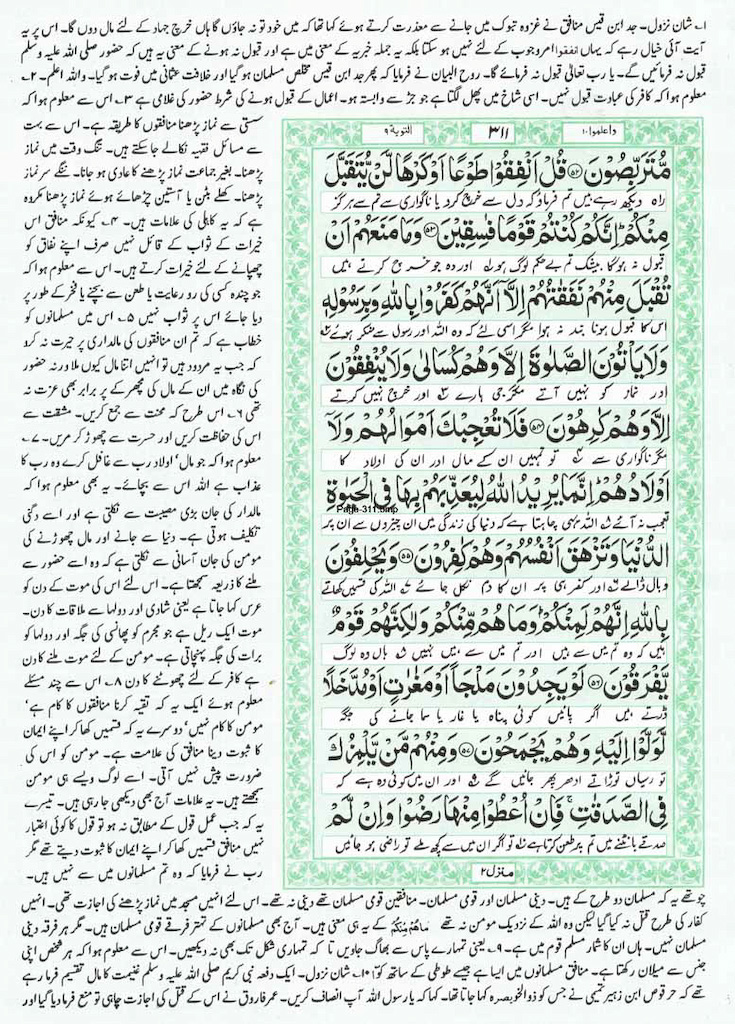 ۱۔ شان نزول۔ جد ابن قیس منافق نے غزوہ تبوک میں جانے سے معذرت کرتے ہوئے کہا تھا کہ میں خود تو نہ جاؤں گا ہاں خرچ جہاد کے لئے مال دوں گا۔ اس پر یہ
آیت آئی خیال رہے کہ یہاں انفقوا امر وجوب کے لئے نہیں ہو سکتا بلکہ یہ جملہ خبریہ کے معنی میں ہے اور قبول نہ ہونے کے معنی یہ ہیں کہ حضور صلی اللہ علیہ وسلم
قبول نہ فرمائیں گے۔ یا رب تعالٰی قبول نہ فرمائے گا۔ روح البیان نے فرمایا کہ پھر جد ابن قیس مخلص مسلمان ہو گیا اور خلافت عثمانی میں فوت ہو گیا۔ واللہ اعلم۔ ۲۔
معلوم ہوا کہ کافر کی عبادت قبول نہیں۔ اسی شاخ میں پھل لگتا ہے جو جڑ سے وابستہ ہو۔ اعمال کے قبول ہونے کی شرط حضور کی غلامی ہے ۳۔ اس سے معلوم ہوا کہ
سستی سے نماز پڑھنا منافقوں کا طریقہ ہے۔ اس سے بہت
سے مسائل فقہیہ نکالے جاسکتے ہیں۔ تنگ وقت میں نماز
پڑھنا۔ بغیر جماعت نماز پڑھنے کا عادی ہو جانا۔ ننگے سر نماز
پڑھنا۔ کھلے بٹن یا آستین چڑھائے ہوئے نماز پڑھنا مکروہ
ہے کہ یہ کاہلی کی علامات ہیں۔ ۴۔ کیونکہ منافق اس
خیرات کے ثواب کے قائل نہیں صرف اپنے نفاق کو
چھپانے کے لئے خیرات کرتے ہیں۔ اس سے معلوم ہوا کہ
جو چندہ کسی کی رو رعایت یا طعن سے بچنے یا فخر کے طور پر
دیا جائے اس پر ثواب نہیں ۵۔ اس میں مسلمانوں کو
خطاب ہے کہ تم ان منافقوں کی مالداری پر حیرت نہ کرو
کہ جب یہ مردود ہیں تو انہیں اتنا مال کیوں ملا ورنہ حضور
کی نگاہ میں ان کے مال کی مچھر کے پر برابر بھی عزت نہ
تھی ۶۔ اس طرح کہ محنت سے جمع کریں۔ مشقت سے
اس کی حفاظت کریں اور حسرت سے چھوڑ کر مریں۔ ۷۔
معلوم ہوا کہ جو مال' اولاد رب سے غافل کرے وہ رب کا
عذاب ہے اللہ اس سے بچائے۔ یہ بھی معلوم ہوا کہ
مالدار کی جان بڑی مصیبت سے نکلتی ہے اور اسے دگنی
تکلیف ہوتی ہے۔ دنیا سے جانے اور مال چھوڑنے کی
مومن کی جان آسانی سے نکلتی ہے کہ وہ اسے حضور سے
ملنے کا ذریعہ سمجھتا ہے۔ اس لئے اس کی موت کے دن کو
عرس کہا جاتا ہے یعنی شادی اور دولہا سے ملاقات کا دن۔
موت ایک ریل ہے جو مجرم کو پھانسی کی جگہ اور دولہا کو
برات کی جگہ پہنچاتی ہے۔ مومن کے لئے موت ملنے کا دن
ہے کافر کے لئے چھوٹنے کا دن ۸۔ اس سے چند مسئلے
معلوم ہوئے ایک یہ کہ تقیہ کرنا منافقوں کا کام ہے'
مومن کا کام نہیں' دوسرے یہ کہ قسمیں کھا کر اپنے ایمان
کا ثبوت دینا منافق کی علامت ہے۔ مومن کو اس کی
ضرورت پیش نہیں آتی۔ اسے لوگ ویسے ہی مومن
سمجھتے ہیں۔ یہ علامات آج بھی دیکھی جا رہی ہیں۔ تیسرے
یہ کہ جب عمل قول کے مطابق نہ ہو تو قول کا کوئی اعتبار
نہیں منافق قسمیں کھا کر اپنے ایمان کا ثبوت دیتے تھے مگر
رب نے فرمایا کہ وہ تم مسلمانوں میں سے نہیں ہیں۔
واعلموا ۱۰ ۳۱۱ التوبة ۹
مُّتَرَبِّصُوْنَ ﴿۵۲﴾ قُلْ اَنْفِقُوْا طَوْعًا اَوْ كَرْهًا لَّنْ يُّتَقَبَّلَ
راہ دیکھ رہے ہیں تم فرماؤ کہ دل سے خرچ کرو یا ناگواری سے تم سے ہرگز
مِنْكُمْ ؕ اِنَّكُمْ كُنْتُمْ قَوْمًا فٰسِقِيْنَ ﴿۵۳﴾ وَمَا مَنَعَهُمْ اَنْ
قبول نہ ہوگا بیشک تم بے حکم لوگ ہو اور وہ جو خرچ کرتے ہیں
تُقْبَلَ مِنْهُمْ نَفَقٰتُهُمْ اِلَّاۤ اَنَّهُمْ كَفَرُوْا بِاللّٰهِ وَبِرَسُوْلِهٖ
اس کا قبول ہونا بند نہ ہوا مگر اسی لئے کہ وہ اللہ اور رسول سے منکر ہوئے
وَلَا يَاْتُوْنَ الصَّلٰوةَ اِلَّا وَهُمْ كُسَالٰى وَلَا يُنْفِقُوْنَ
اور نماز کو نہیں آتے مگر جی ہارے اور خرچ نہیں کرتے
اِلَّا وَهُمْ كٰرِهُوْنَ ﴿۵۴﴾ فَلَا تُعْجِبْكَ اَمْوَالُهُمْ وَلَاۤ
مگر ناگواری سے تو تمہیں ان کے مال اور ان کی اولاد کا
اَوْلَادُهُمْ ؕ اِنَّمَا يُرِيْدُ اللّٰهُ لِيُعَذِّبَهُمْ بِهَا فِى الْحَيٰوةِ
Page-311.bmp
تعجب نہ آئے اللہ یہی چاہتا ہے کہ دنیا کی زندگی میں ان چیزوں سے ان پر
الدُّنْيَا وَتَزْهَقَ اَنْفُسُهُمْ وَهُمْ كٰفِرُوْنَ ﴿۵۵﴾ وَيَحْلِفُوْنَ
وبال ڈالے اور کفر ہی پر ان کا دم نکل جائے اللہ کی قسمیں کھاتے
بِاللّٰهِ اِنَّهُمْ لَمِنْكُمْ ؕ وَمَا هُمْ مِّنْكُمْ وَلٰكِنَّهُمْ قَوْمٌ
ہیں کہ وہ تم میں سے ہیں اور تم میں سے ہیں نہیں ہاں وہ لوگ
يَّفْرَقُوْنَ ﴿۵۶﴾ لَوْ يَجِدُوْنَ مَلْجَاً اَوْ مَغٰرٰتٍ اَوْ مُدَّخَلًا
ڈرتے ہیں اگر پائیں کوئی پناہ یا غار یا سما جانے کی جگہ
لَّوَلَّوْا اِلَيْهِ وَهُمْ يَجْمَحُوْنَ ﴿۵۷﴾ وَمِنْهُمْ مَّنْ يَّلْمِزُكَ
تو رسیاں توڑاتے ادھر پھر جائیں گے اور ان میں کوئی وہ ہے کہ
فِى الصَّدَقٰتِ ۚ فَاِنْ اُعْطُوْا مِنْهَا رَضُوْا وَاِنْ لَّمْ
صدقے بانٹنے میں تم پر طعن کرتا ہے تو اگر ان میں سے کچھ ملے تو راضی ہو جائیں
منزل ۲
چوتھے یہ کہ مسلمان دو طرح کے ہیں۔ دینی مسلمان اور قومی مسلمان۔ منافقین قومی مسلمان تھے دینی نہ تھے۔ اس لئے انہیں مسجد میں نماز پڑھنے کی اجازت تھی۔ انہیں
کفار کی طرح قتل نہ کیا گیا لیکن وہ اللہ کے نزدیک مومن نہ تھے مَاهُمْ مِّنْكُمْ کے یہ ہی معنی ہیں۔ آج بھی مسلمانوں کے تہتر فرقے قومی مسلمان ہیں۔ مگر ہر فرقہ دینی
مسلمان نہیں۔ ہاں ان کا شمار مسلم قوم میں ہے۔ ۹۔ یعنی تمہارے پاس سے بھاگ جاویں تا کہ تمہاری شکل تک بھی نہ دیکھیں۔ اس سے معلوم ہوا کہ ہر شخص اپنی
جنس سے میلان رکھتا ہے۔ منافق مسلمانوں میں ایسا ہے جیسے طوطی کے ساتھ کوّا ۱۰۔ شان نزول۔ ایک دفعہ نبی کریم صلی اللہ علیہ وسلم غنیمت کا مال تقسیم فرما رہے
تھے کہ حرقوص ابن زہیر تمیمی نے جس کو ذوالخویصرہ کہا جاتا تھا۔ کہا کہ یا رسول اللہ آپ انصاف کریں۔ عمر فاروق نے اس کے قتل کی اجازت چاہی تو منع فرما دیا گیا اور